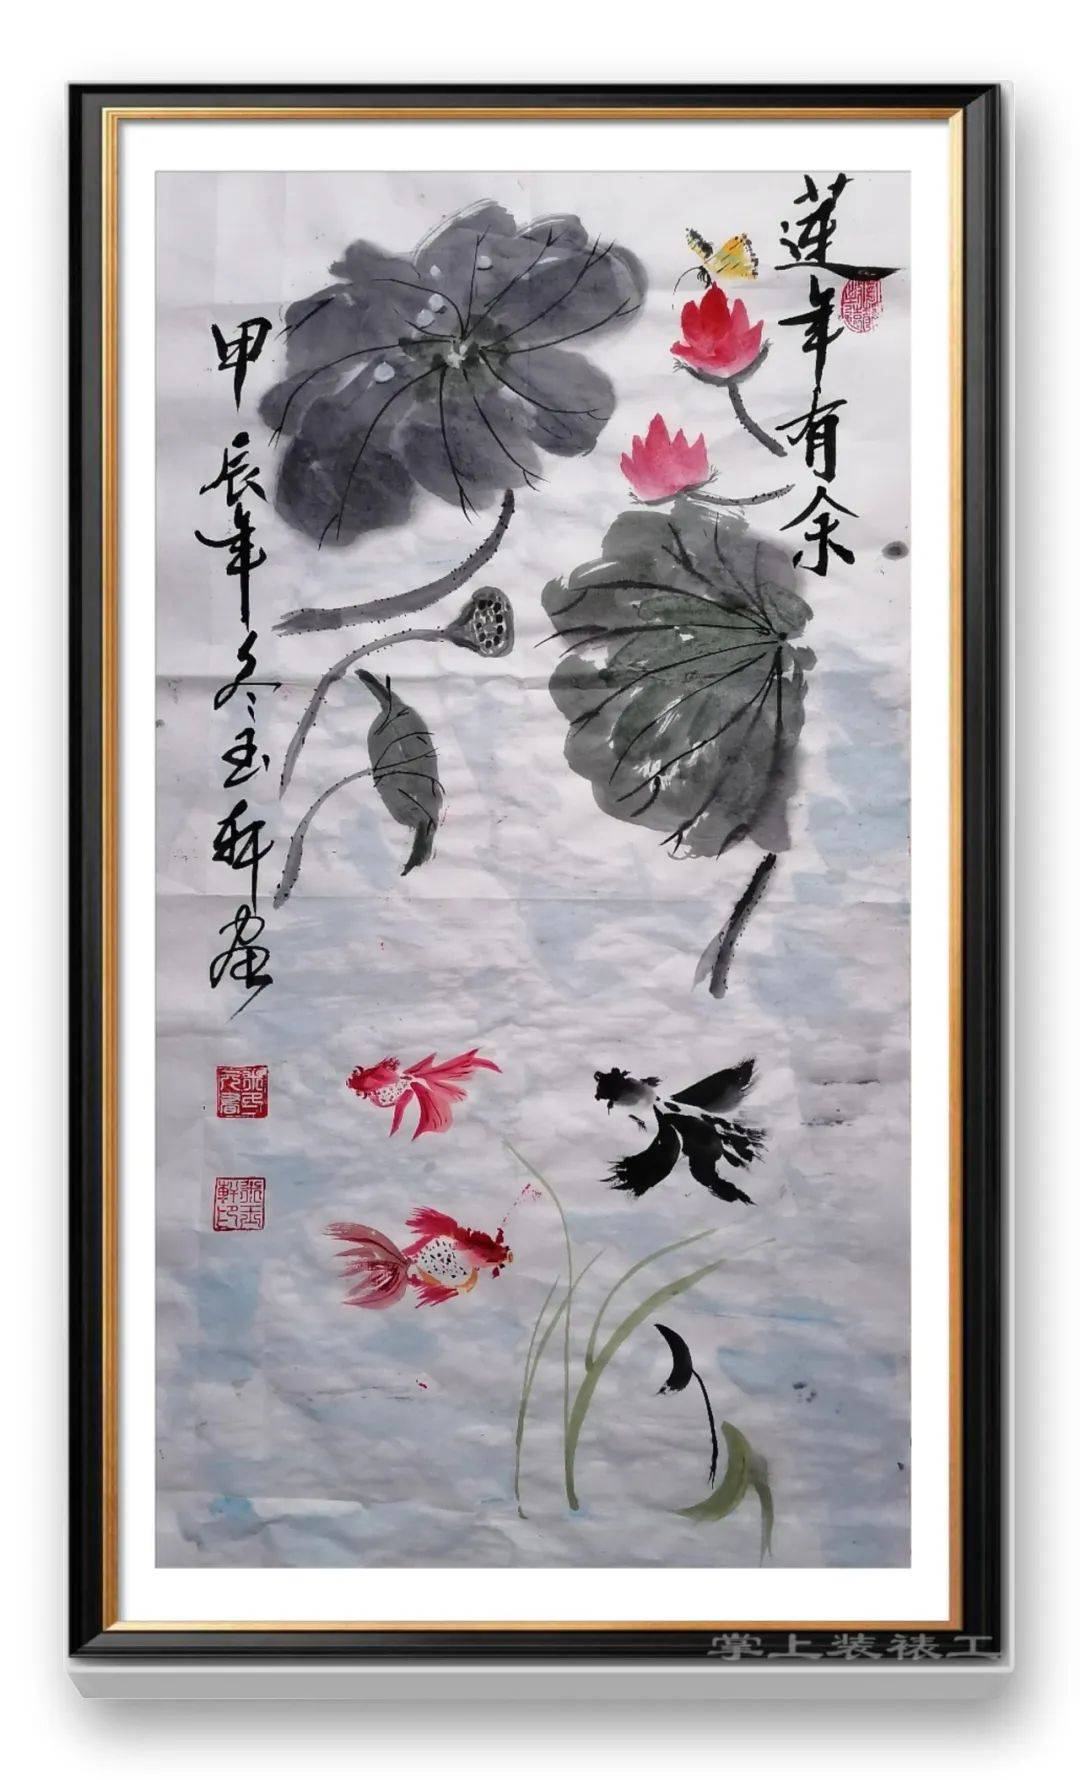 莲年有余
甲辰年冬玉轩画
掌上装裱工